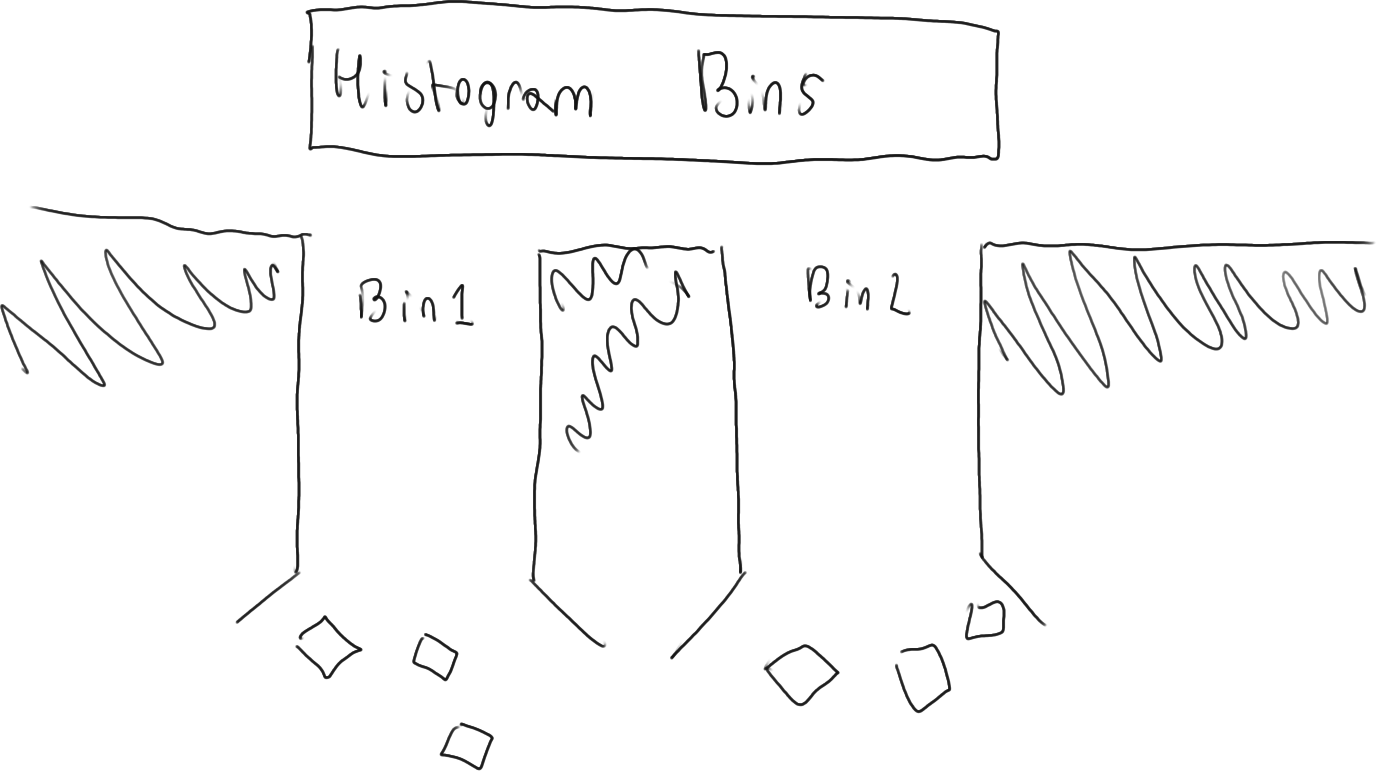 Histogram Bins
Bin1
Bin2